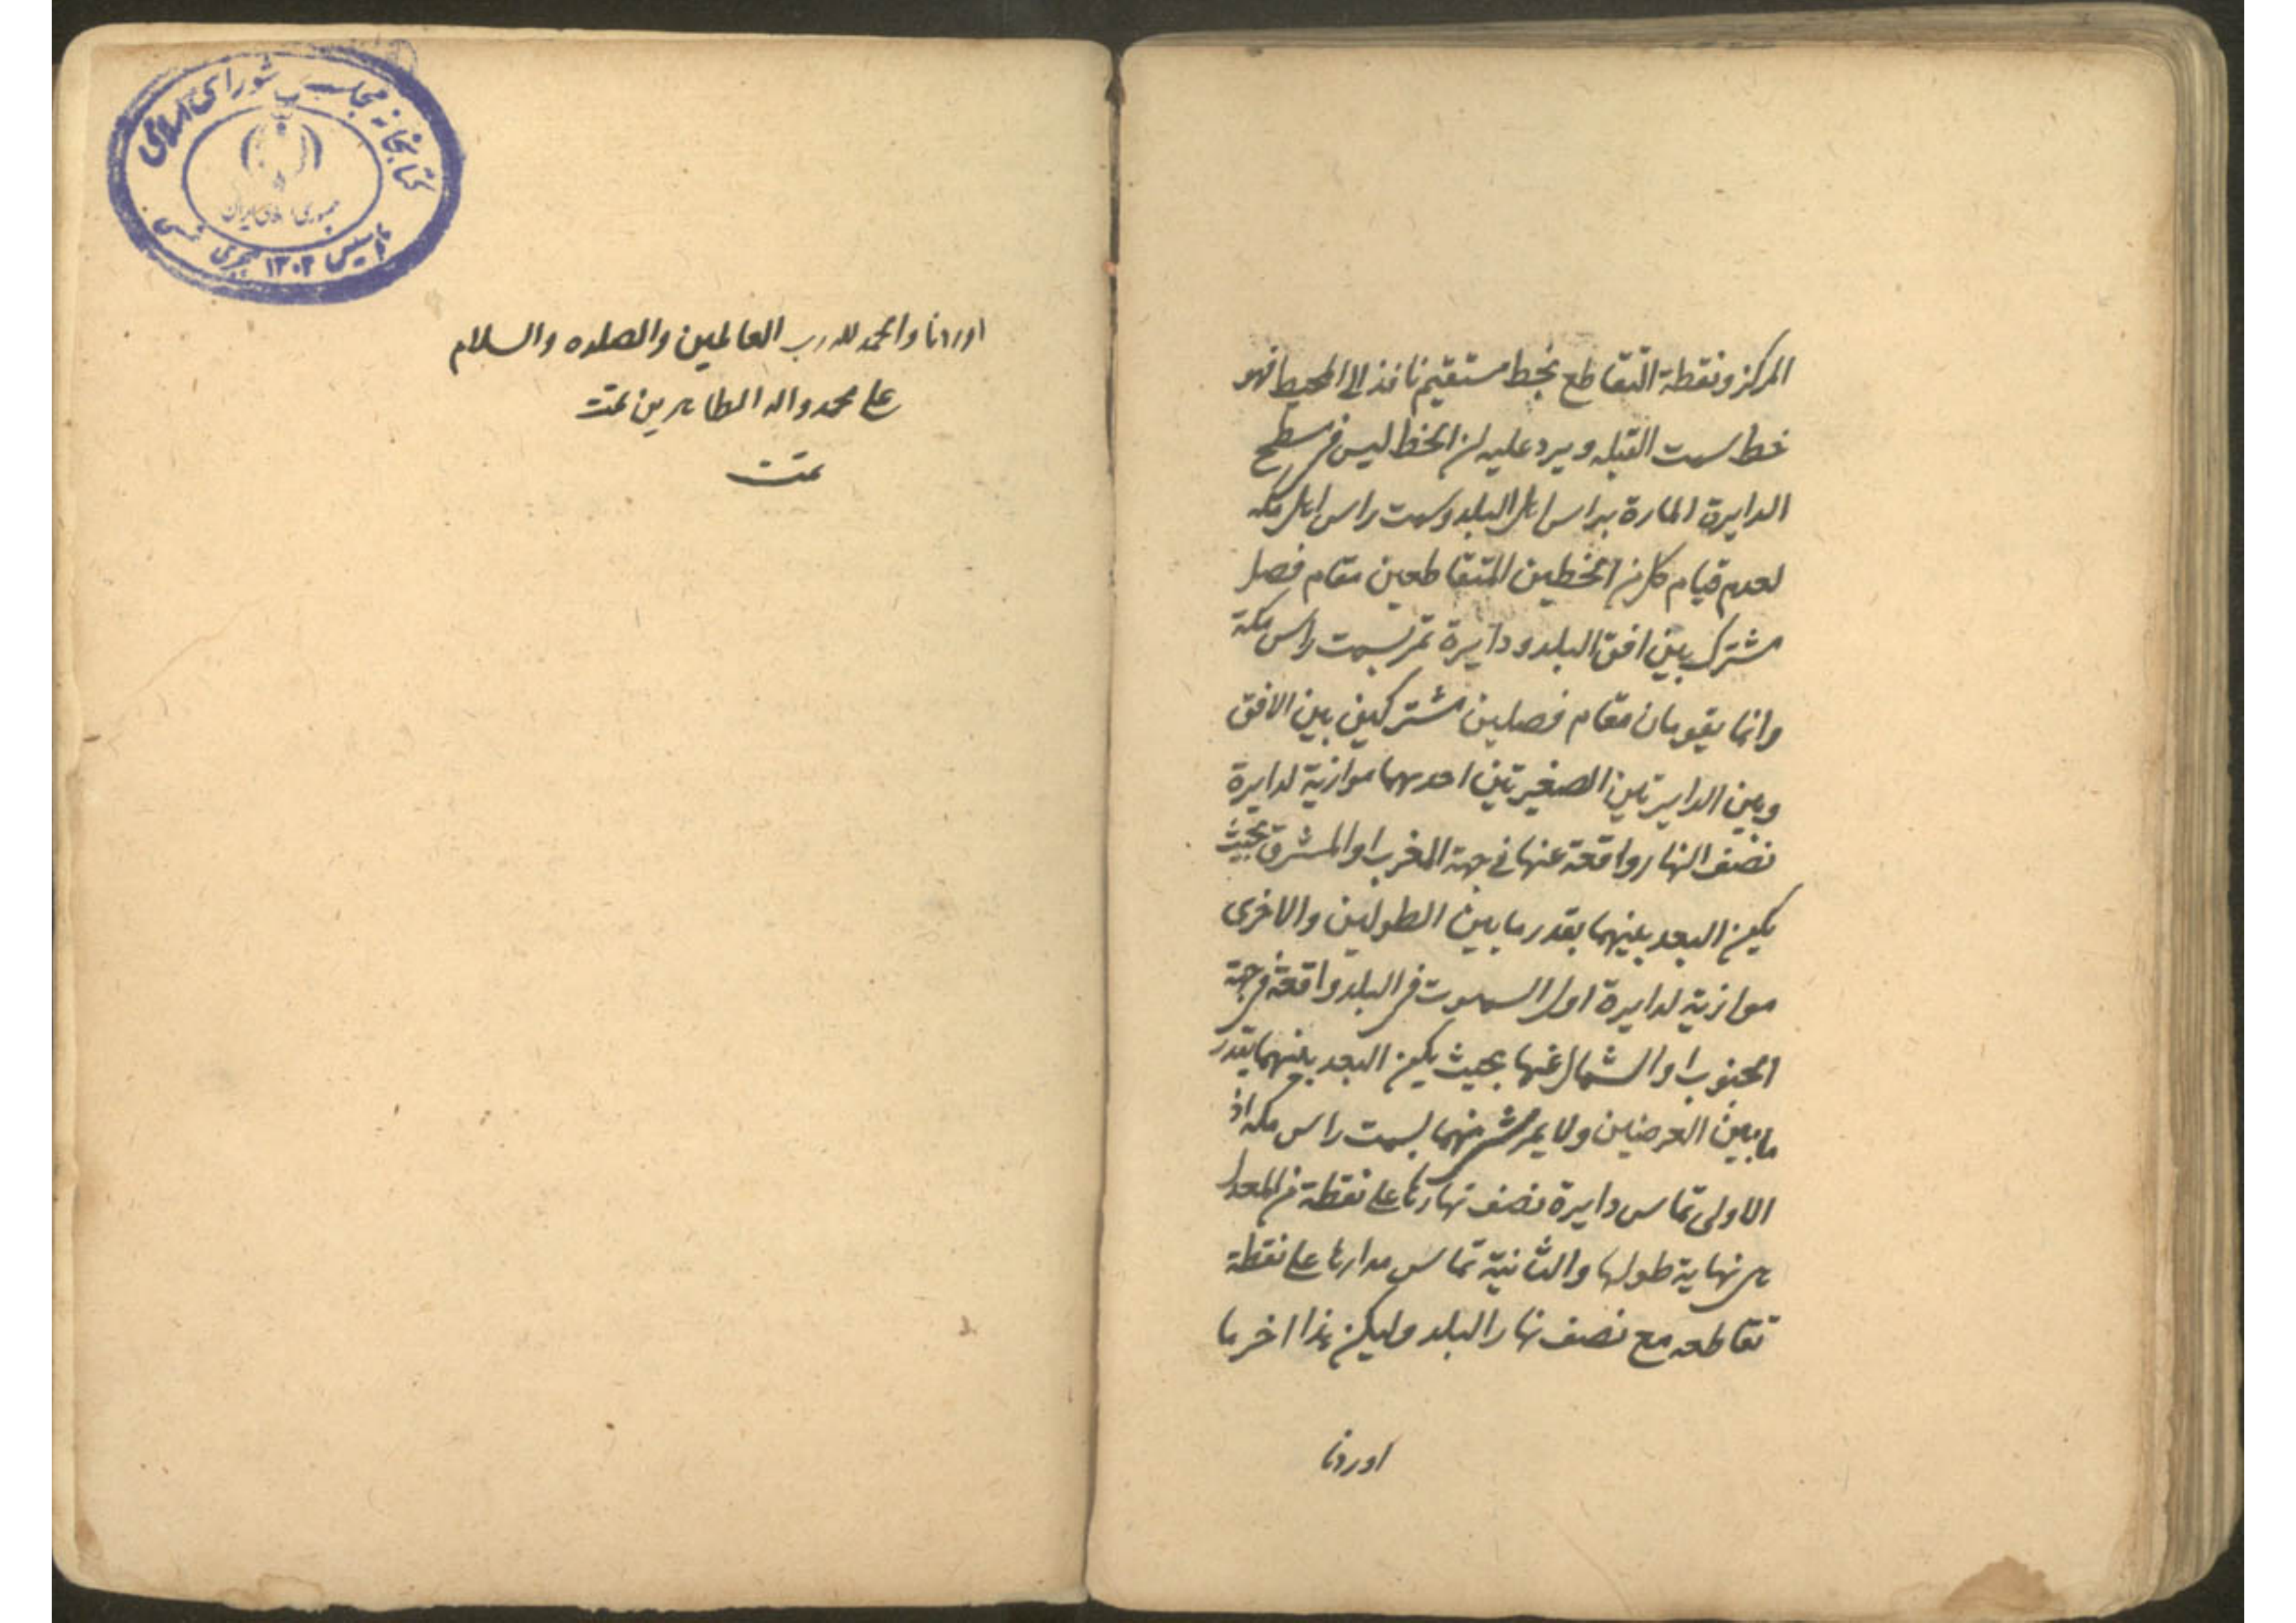 المركز ونقطة التقاطع بخط مستقيم نافذ الى المحيط فهو
خط سمت القبله ويرد عليه ان الخط ليس فى سطح
الدايرة المارة براس اهل البلد وسمت راس اهل مكه
لعدم قيام كل من الخطين المتقاطعين مقام فصل
مشترك بين افق البلد ودايرة تمر بسمت راس مكة
وانما يقومان مقام فصلين مشتركين بين الافق
وبين الدايرتين الصغيرتين احدىهما موازية لدايرة
نصف النهار واقعة عنها فى جهة المغرب او المشرق بحيث
يكون البعد بينهما بقدر ما بين الطولين والاخرى
موازية لدايرة اول السموت فى البلد واقعة فى جهة
الجنوب او الشمال عنها بحيث يكون البعد بينهما بقدر
ما بين العرضين ولا يمر شى منهما بسمت راس مكه اذ
الاولى تماس دايرة نصف نهارها على نقطة من المعدل
هى نهاية طولها والثانية تماس مدارها على نقطة
تقاطعه مع نصف نهار البلد وليكن هذا اخر ما
اوردنا
اوردنا والحمد لله رب العالمين والصلوه والسلام
على محمد واله الطاهرين تمت
تمت
كتابخانه مجلس شوراى اسلامى
جمهورى اسلامى ايران
تاسيس ۱۳۰۲ هجرى شمسى